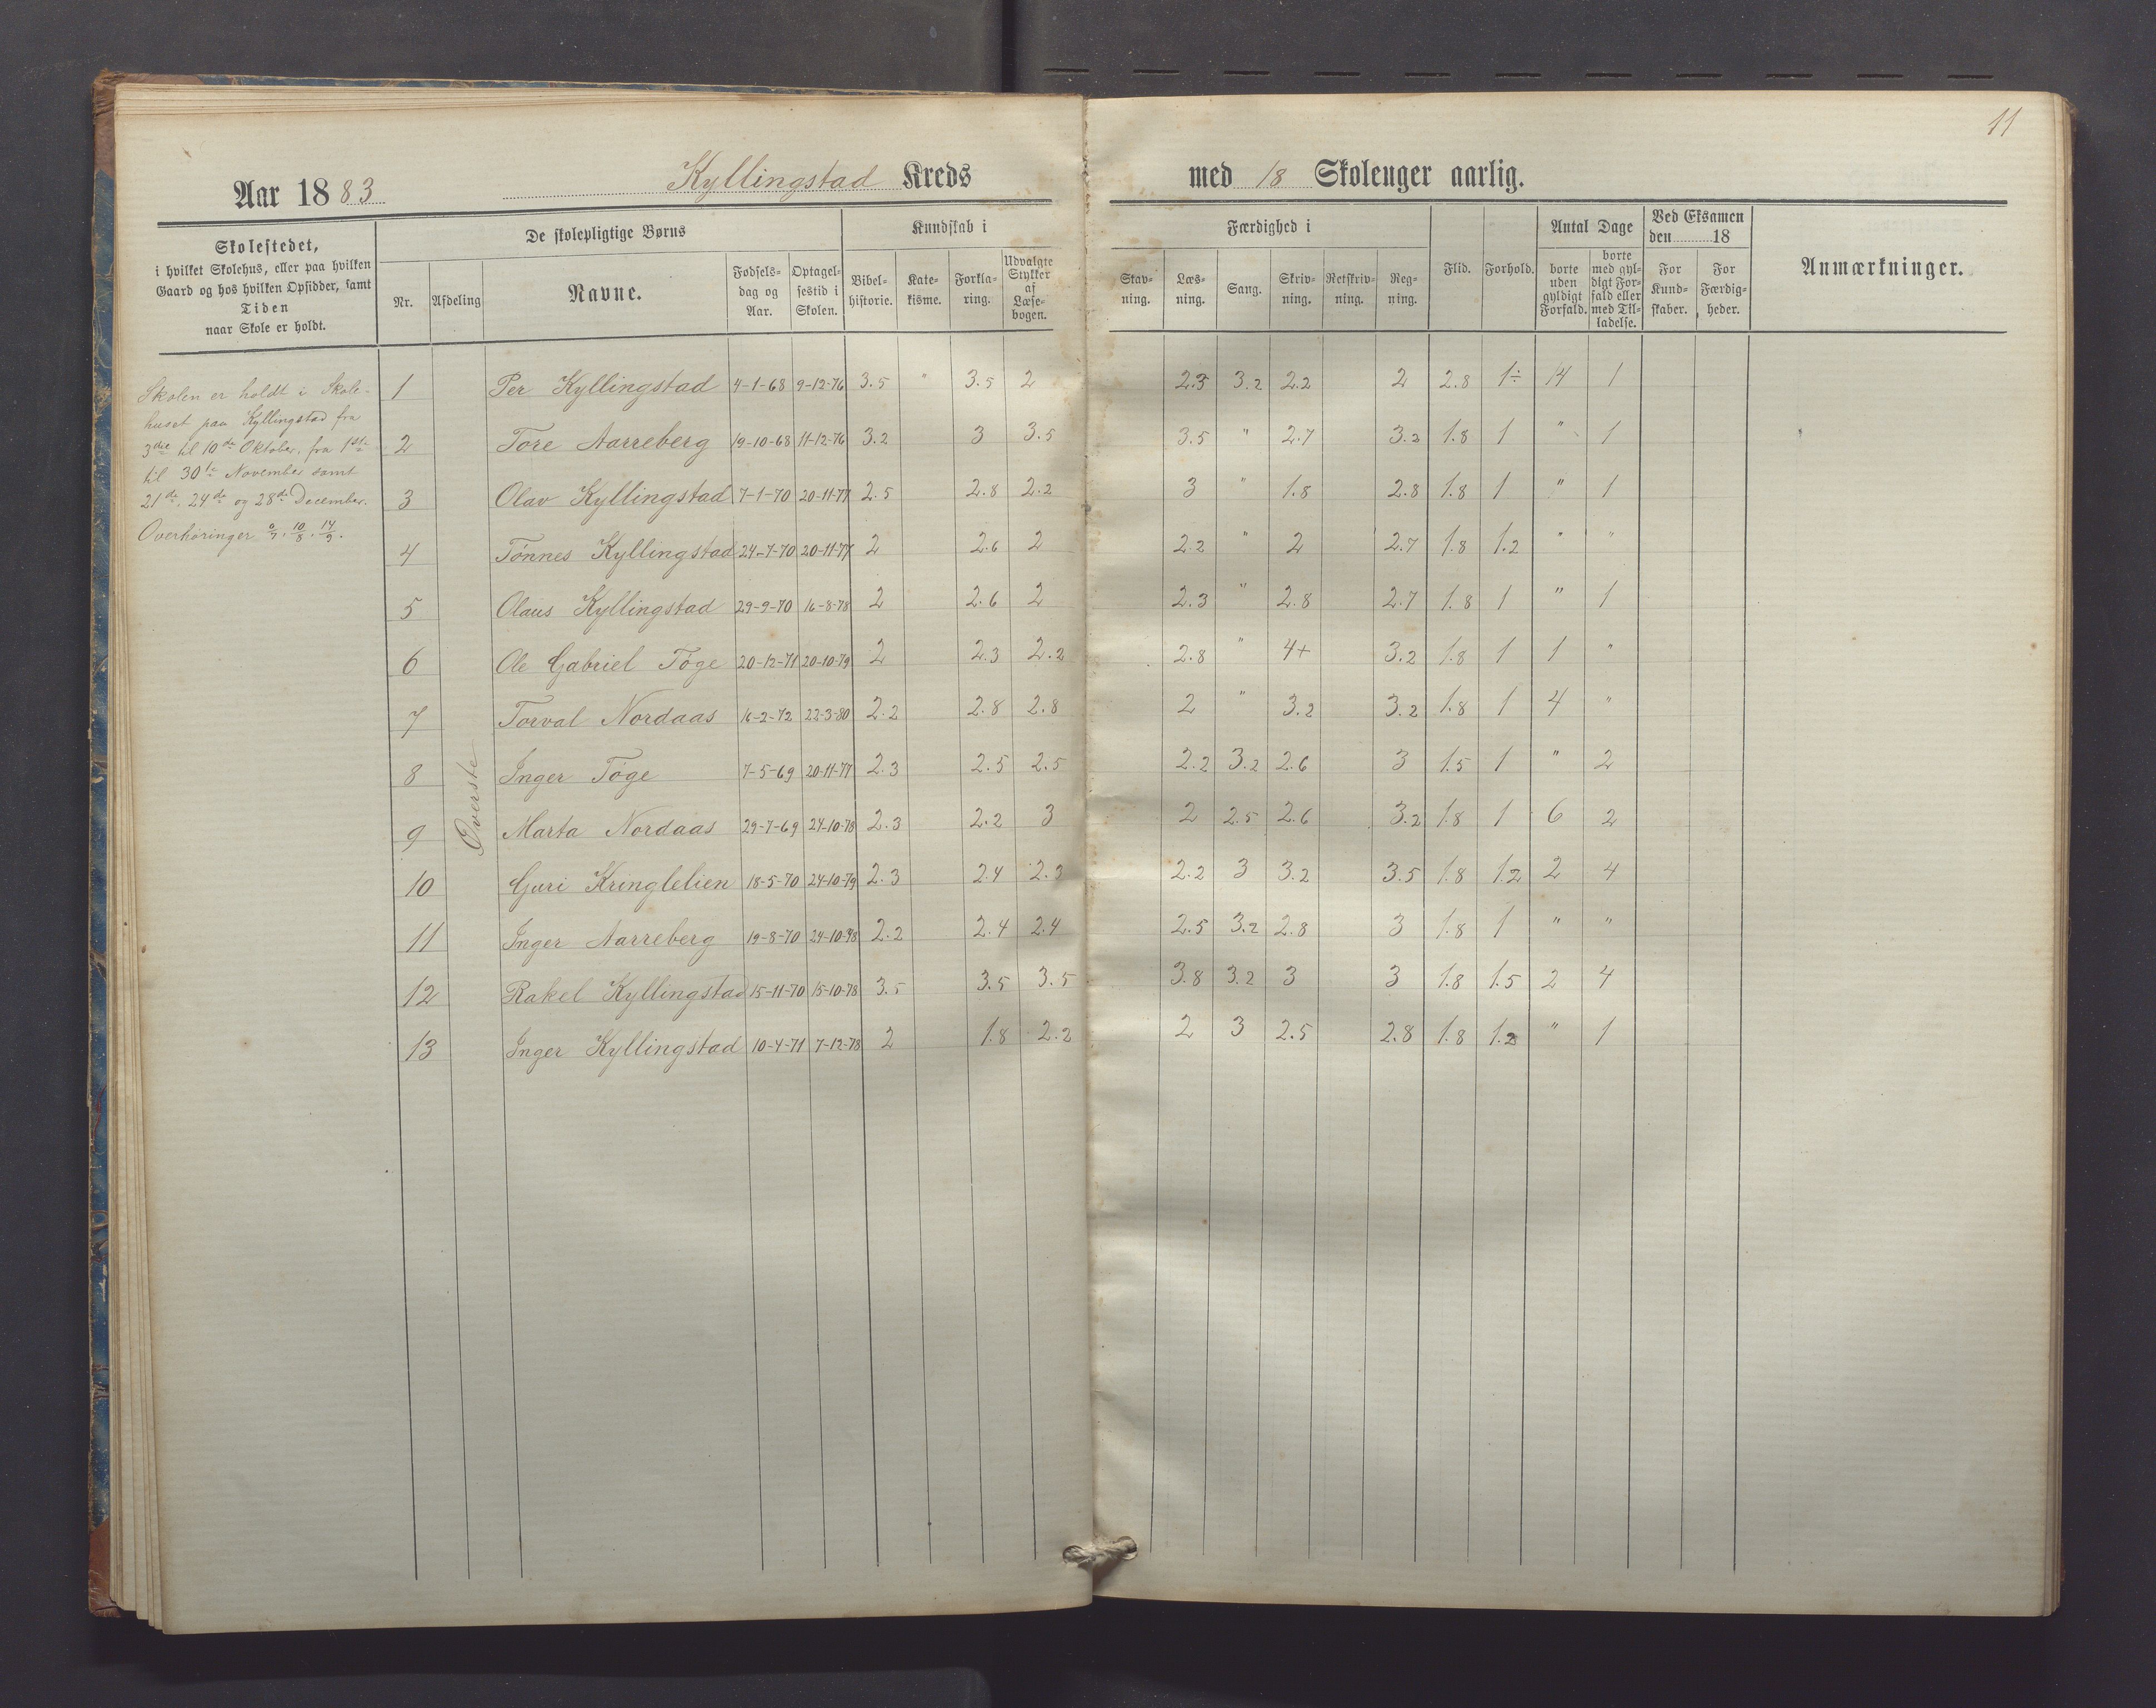 11
Aar 1883 Kyllingstad Kreds med 18 Skoleuger aarlig.
Skolestedet,
i hvilket Skolehus, eller paa hvilken
Gaard og hos hvilken Opsidder, samt
Tiden
naar Skole er holdt.
De skolepligtige Børns
Nr. Afdeling Navne. Fødselsdag og Aar. Optagelsestid i Skolen.
Kundskab i
Bibelhistorie. Katekisme. Forklaring. Udvalgte Stykker af Læsebogen.
Færdighed i
Stavning. Læsning. Sang. Skrivning. Retskrivning. Regning.
Flid. Forhold.
Antal Dage
borte uden gyldigt Forfald. borte med gyldigt Forfald eller med Tilladelse.
Ved Eksamen
den 18
For Kundskaber. For Færdigheder.
Anmærkninger.
Skolen er holdt i Skole-
huset paa Kyllingstad fra
3die til 10de Oktober, fra 1ste
til 30te November samt
21de, 24de og 28de December.
Overhøringer 10/8. 14/9.
Øverste
1 Per Kyllingstad 4-1-68 9-12-76 3.5 " 3.5 2 2.3 3.2 2.2 2 2.8 1÷ 14 1
2 Tore Aarreberg 19-10-68 11-12-76 3.2 3 3.5 3.5 " 2.7 3.2 1.8 1 " 1
3 Olav Kyllingstad 7-1-70 20-11-77 2.5 2.8 2.2 3 " 1.8 2.8 1.8 1 " 1
4 Tønnes Kyllingstad 24-7-70 20-11-77 2 2.6 2 2.2 " 2 2.7 1.8 1.2 " "
5 Olaus Kyllingstad 29-9-70 16-8-78 2 2.6 2 2.3 " 2.8 2.7 1.8 1 " 1
6 Ole Gabriel Tøge 20-12-71 20-10-79 2 2.3 2.2 2.8 " 4+ 3.2 1.8 1 1 "
7 Torval Nordaas 16-2-72 22-3-80 2.2 2.8 2.8 2 " 3.2 3.2 1.8 1 4 "
8 Inger Tøge 7-5-69 20-11-77 2.3 2.5 2.5 2.2 3.2 2.6 3 1.5 1 " 2
9 Marta Nordaas 29-7-69 24-10-78 2.3 2.2 3 2 2.5 2.6 3.2 1.8 1 6 2
10 Guri Kringlelien 18-5-70 24-10-79 2.3 2.4 2.3 2.2 3 3.2 3.5 1.8 1.2 2 4
11 Inger Aarreberg 19-8-70 24-10-78 2.2 2.4 2.4 2.5 3.2 2.8 3 1.8 1 " "
12 Rakel Kyllingstad 15-11-70 15-10-78 3.5 3.5 3.5 3.8 3.2 3 3 1.8 1.5 2 4
13 Inger Kyllingstad 10-4-71 7-12-78 2 1.8 2.2 2 3 2.5 2.8 1.8 1.2 " 1